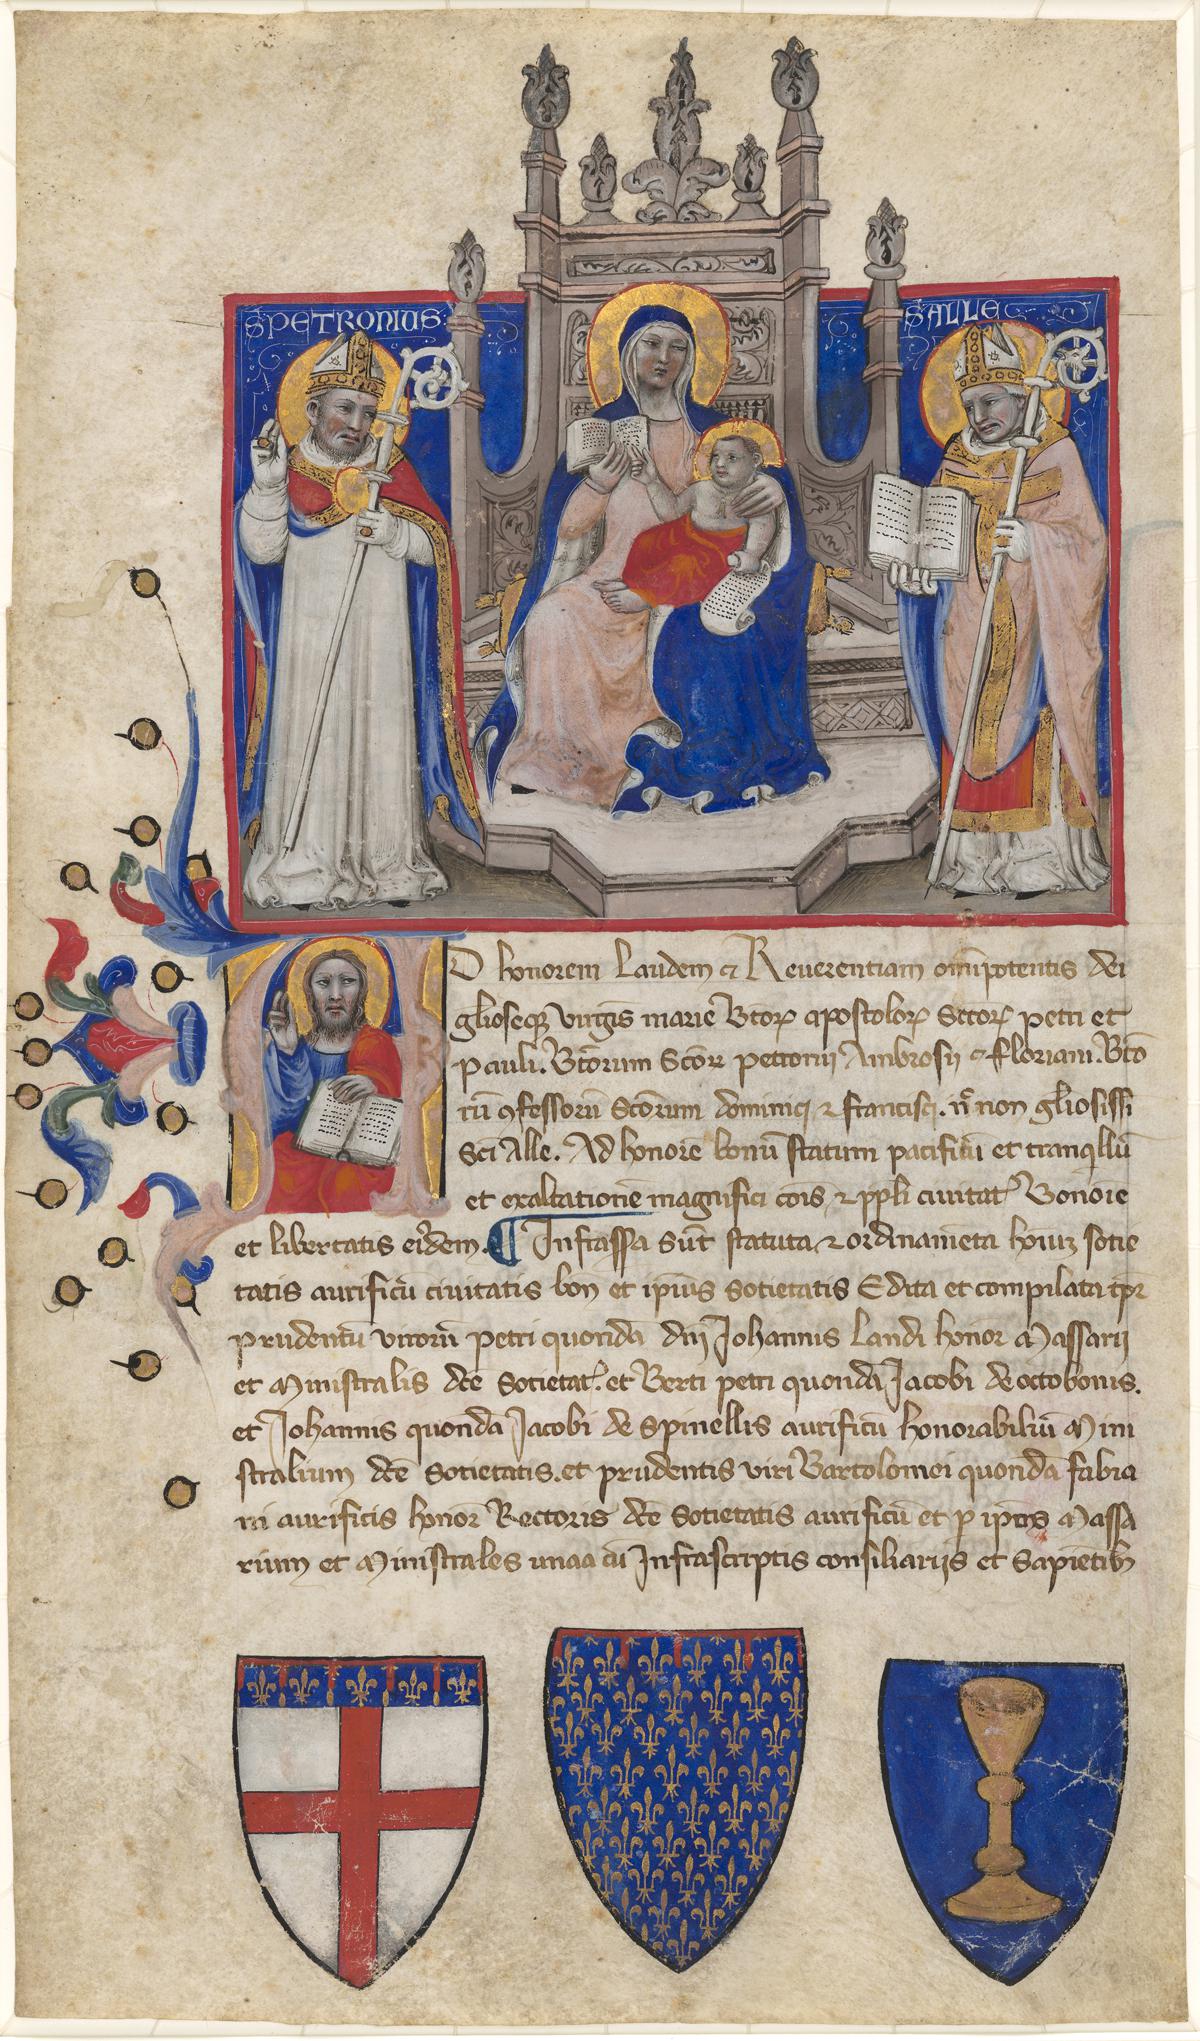 S PETRONIUS
S ALLE
D honorem Laudem et Reverentiam omnipotentis dei
gliose qz virgis marie Btorz apostolorz Sctorz petri et
pauli. Btorum Scorz petronii Ambrosij et floriani. Bto
rū 9fessorū Scorum dominici et francisci. nc̄ non gliosissi
Sci Alle. Ad honorē bonū statum pacificū et tranqllū
et exaltationē magnifici cois et ppli civitat Bonoie
et libertatis eiusdem. ¶ Infrassa sūt statuta et ordinameta huius sotie
tatis aurificū civitatis bon et ipius Sotietatis Edita et compilata tpr
prudentū virorū petri quonda dni Johannis Landi honor Massarij
et Ministralis dce Sotietat. et Berti petri quondā Jacobi de octobonis.
et Johannis quondā Jacobi de Spinellis aurificū honorabiliū Mini
stralium dce Sotietatis. et prudentis viri Bartolomei quondā fabia
ni aurificis honor Rectoris dce Sotietatis aurificū et p ipos Massa
rium et Ministrales unaa cū Infrascriptis consiliarijs et Sapietib